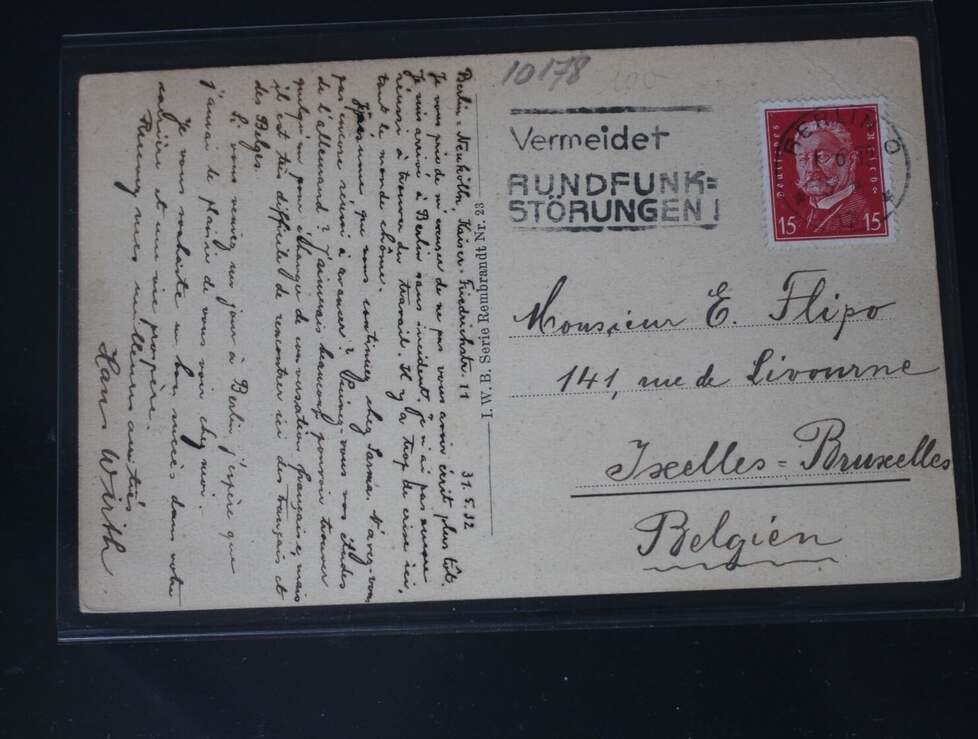 10178
Vermeidet
RUNDFUNK=
STÖRUNGEN!
BERLIN
Deutsches Reich
15 15
Monsieur E. Flipo
141, rue de Livourne
Ixelles = Bruxelles
Belgien
I.W.B. Serie Rembrandt Nr. 23
Berlin = Neukölln, Kaiser-Friedrichstr. 11 31.5.32
Je vous prie de m'excuser de ne pas vous avoir écrit plus tôt.
Je suis arrivé à Berlin sans incident. Je n'ai pas encore
réussi à trouver du travail. Il y a trop de crise ici,
tout le monde chôme.
que vous continuez chez Sarma. N'avez-vous
pas encore réussi à avancer? Suivez-vous vos études
de l'allemand? J'aimerais beaucoup pouvoir trouver
quelqu'un pour échanger de conversation française, mais
il est très difficile de rencontrer ici des français et
des Belges.
Si vous veniez un jour à Berlin j'espère que
j'aurai le plaisir de vous voir chez moi.
Je vous souhaite un bon succès dans votre
carrière et une vie prospère.
mes meilleures amitiés
Hans Wirth.